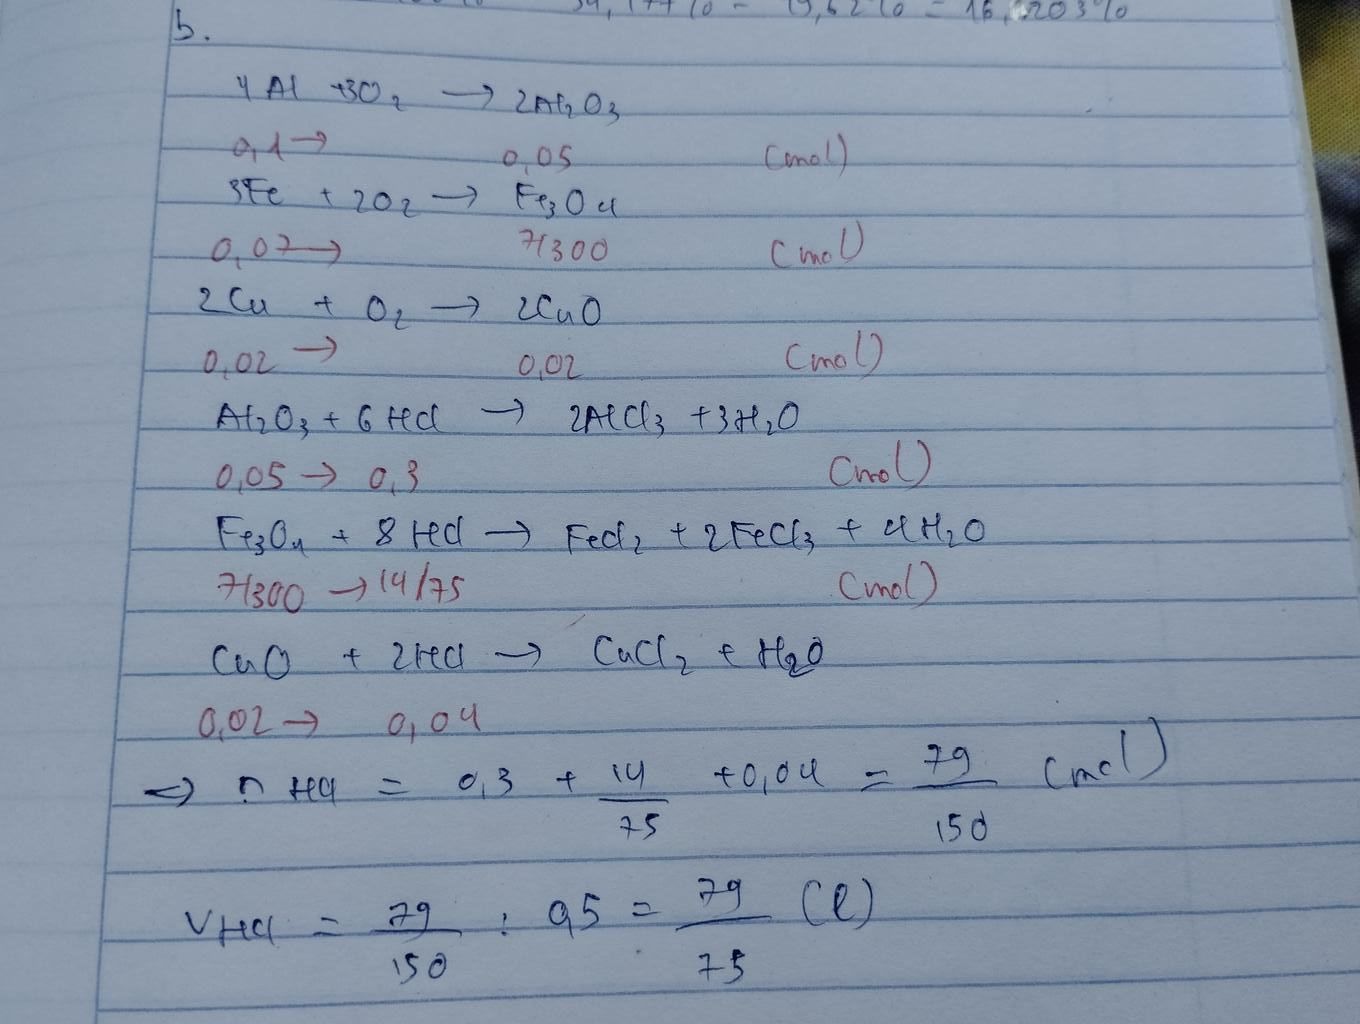 34,177% - 49,62% = 16,203%
b.
4Al +3O₂ → 2Al₂O₃
0,1 → 0,05 (mol)
3Fe + 2O₂ → Fe₃O₄
0,07 → 7/300 (mol)
2Cu + O₂ → 2CuO
0,02 → 0,02 (mol)
Al₂O₃ + 6HCl → 2AlCl₃ +3H₂O
0,05 → 0,3 (mol)
Fe₃O₄ + 8HCl → FeCl₂ + 2FeCl₃ + 4H₂O
7/300 → 14/75 (mol)
CuO + 2HCl → CuCl₂ + H₂O
0,02 → 0,04
=> n HCl = 0,3 + 14/75 +0,04 = 79/150 (mol)
VHCl = 79/150 : 0,5 = 79/75 (l)